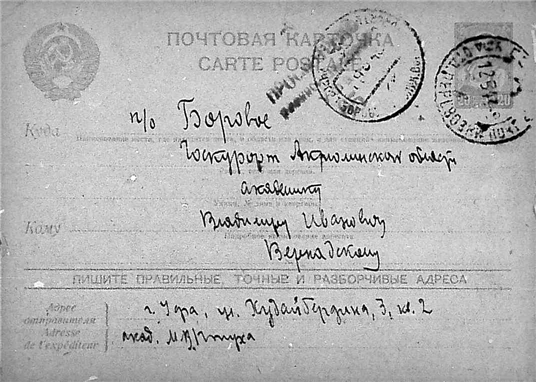 ПОЧТОВАЯ КАРТОЧКА
CARTE POSTALE
п/о Боровое
Куда
Госкурорт Акмолинской области
академику
Кому
Владимиру Ивановичу
Вернадскому
ПИШИТЕ ПРАВИЛЬНЫЕ, ТОЧНЫЕ И РАЗБОРЧИВЫЕ АДРЕСА
Адрес
отправителя
Adresse
de l'expéditeur
г. Уфа, ул. Худайбердина, 3, кв. 2
акад.